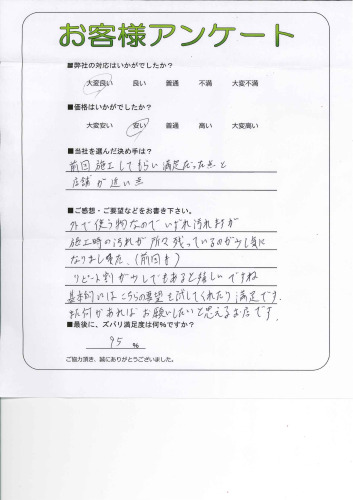 お客様アンケート
■弊社の対応はいかがでしたか？
大変良い 良い 普通 不満 大変不満
■価格はいかがでしたか？
大変安い 安い 普通 高い 大変高い
■当社を選んだ決め手は？
前回施工してもらい満足だった点と
店舗が近い点
■ご感想・ご要望などをお書き下さい。
外で使う物なのでいずれ汚れますが
施工時の汚れが所々残っているのが少し気に
なりました。(前回も)
リピート割が少しでもあると嬉しいですね
基本的にはこちらの要望も試してくれたり満足です。
があればお願いしたいと思えるお店です。
■最後に、ズバリ満足度は何%ですか？
95 %
ご協力頂き、誠にありがとうございました。